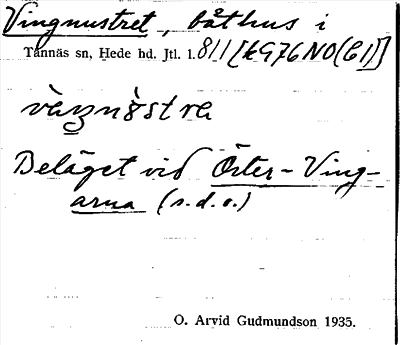 Vingnustret, båthus i
Tännäs sn, Hede hd. Jtl. l. 811 [kG76NO(C1)]
Beläget vid Öster-Ving-
arna (s.d.o.)
O. Arvid Gudmundson 1935.